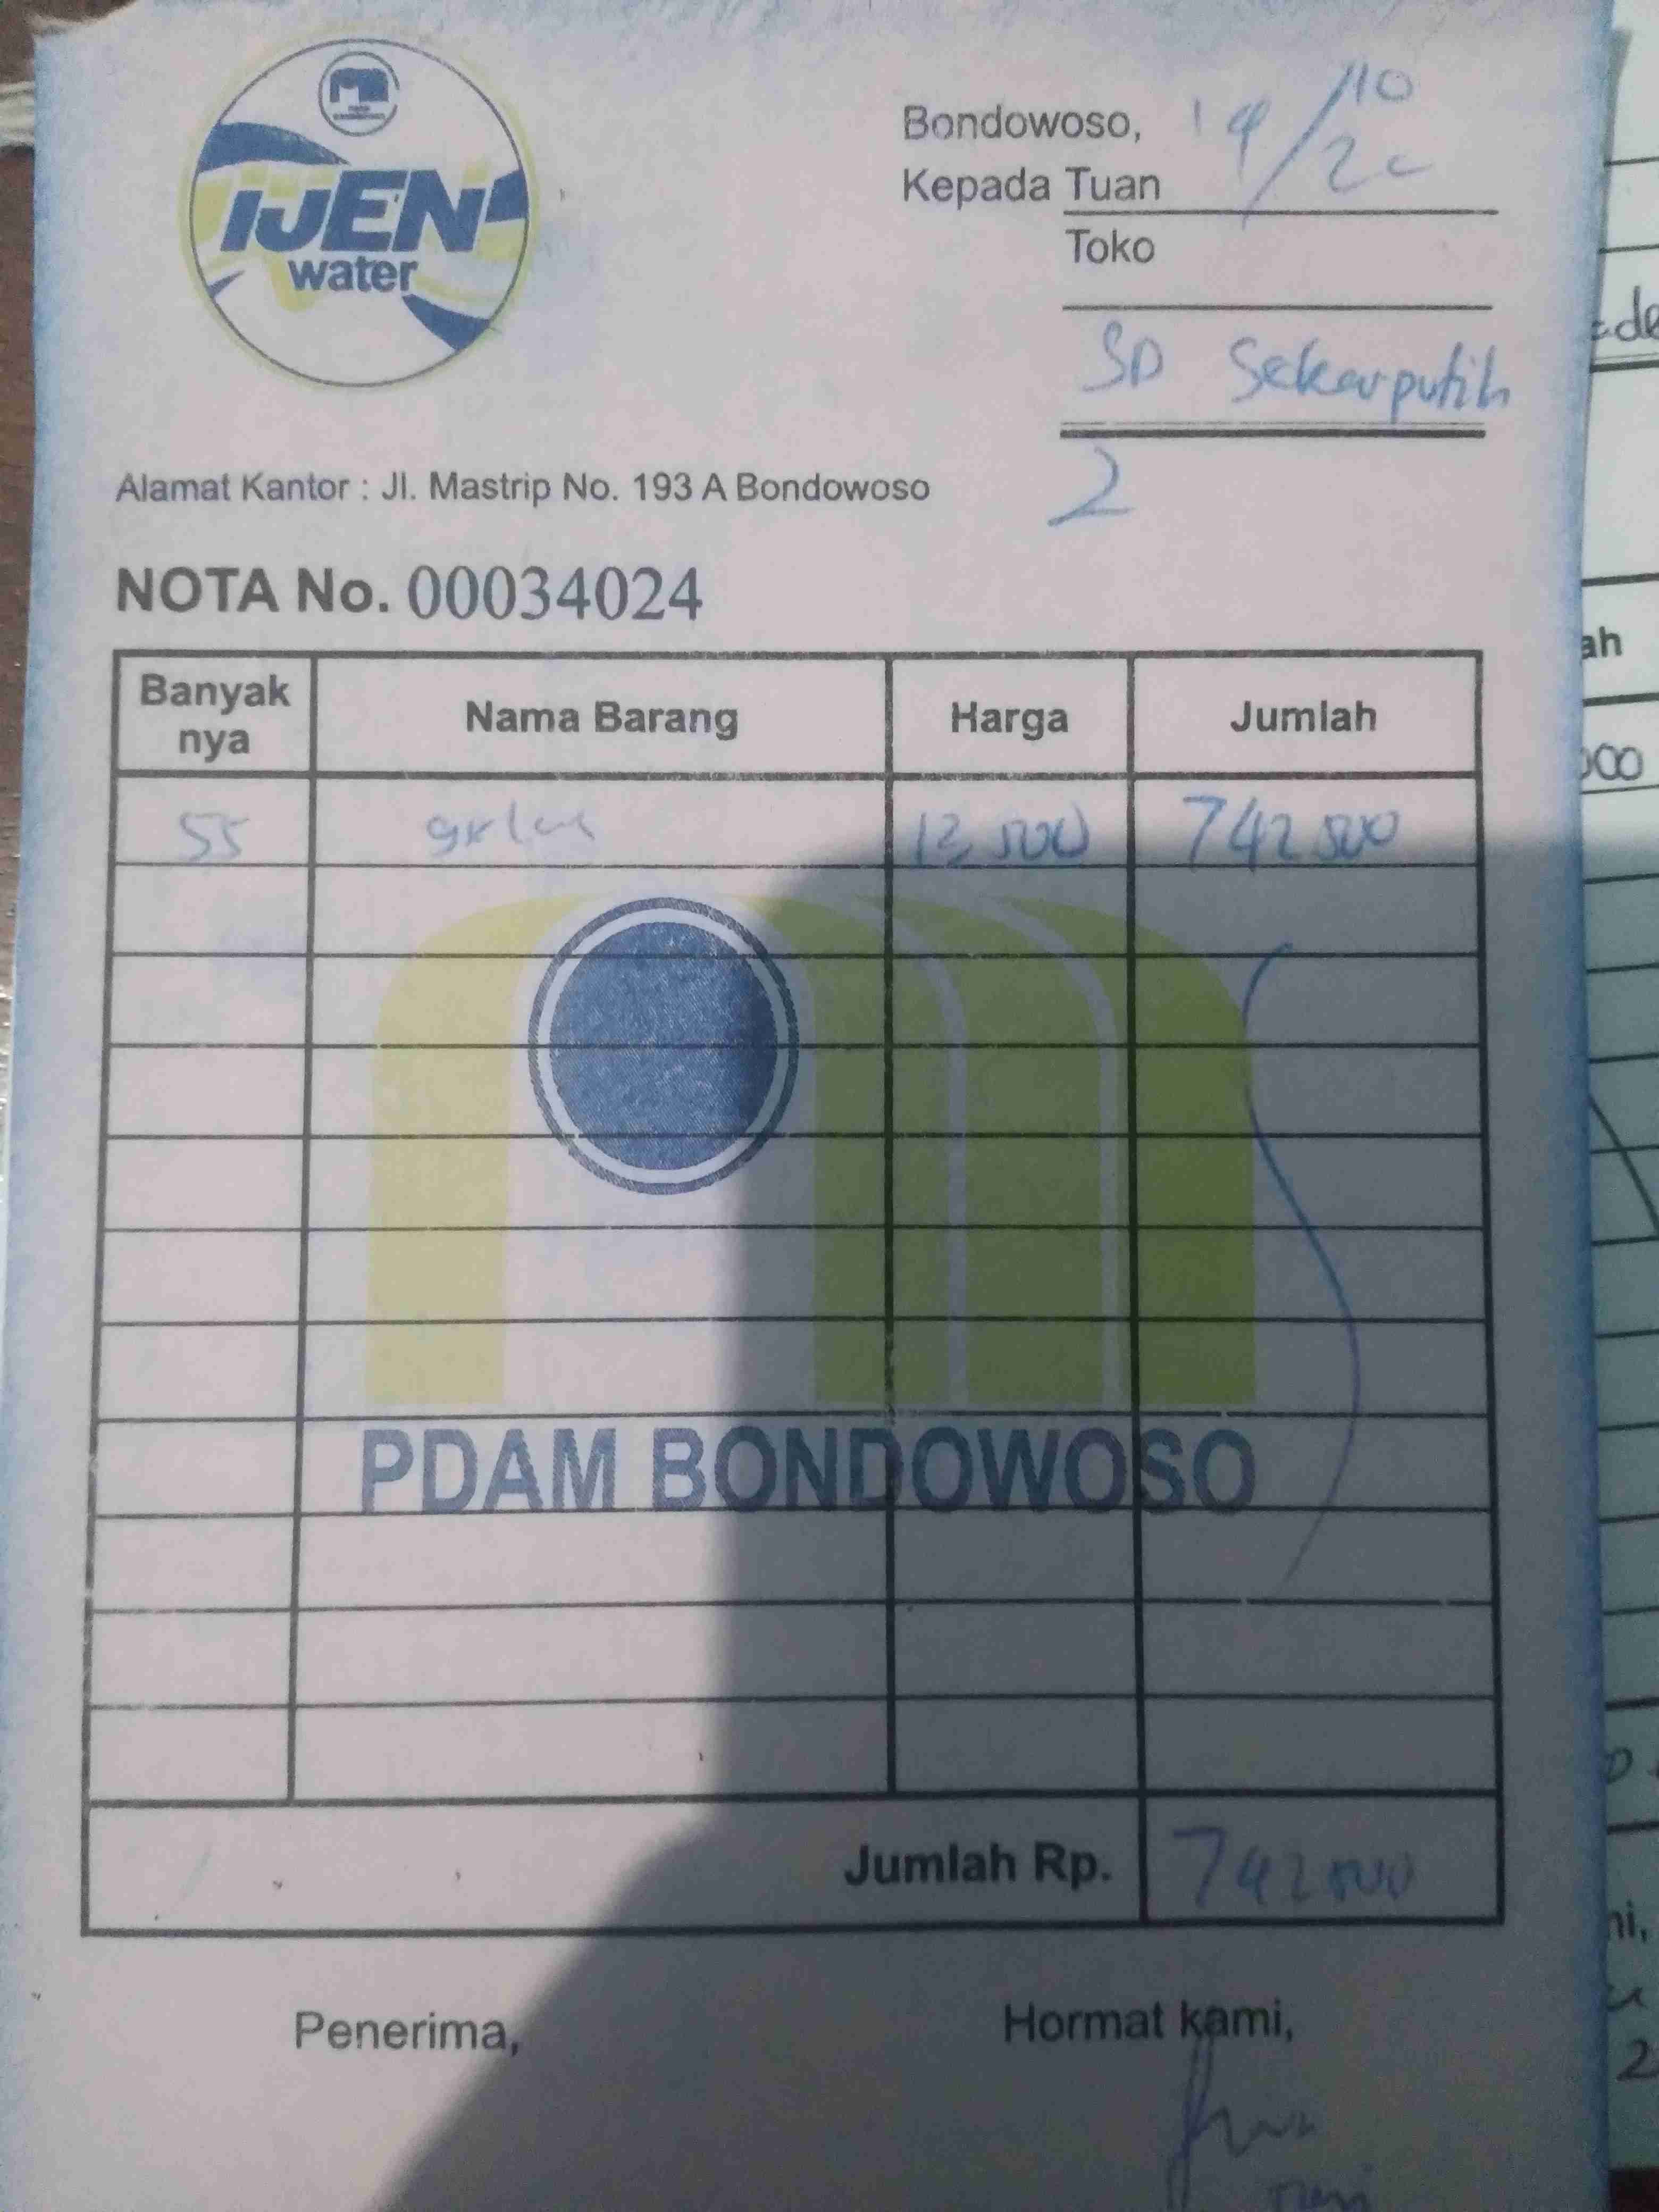 IJEN
water
Bondowoso, 19/10
Kepada Tuan
Toko
SD Sekarputih
2
Alamat Kantor : Jl. Mastrip No. 193 A Bondowoso
NOTA No. 00034024
Banyak nya Nama Barang Harga Jumlah
55 gelas 13 500 742 500
PDAM BONDOWOSO
Jumlah Rp. 742 500
Penerima, Hormat kami,